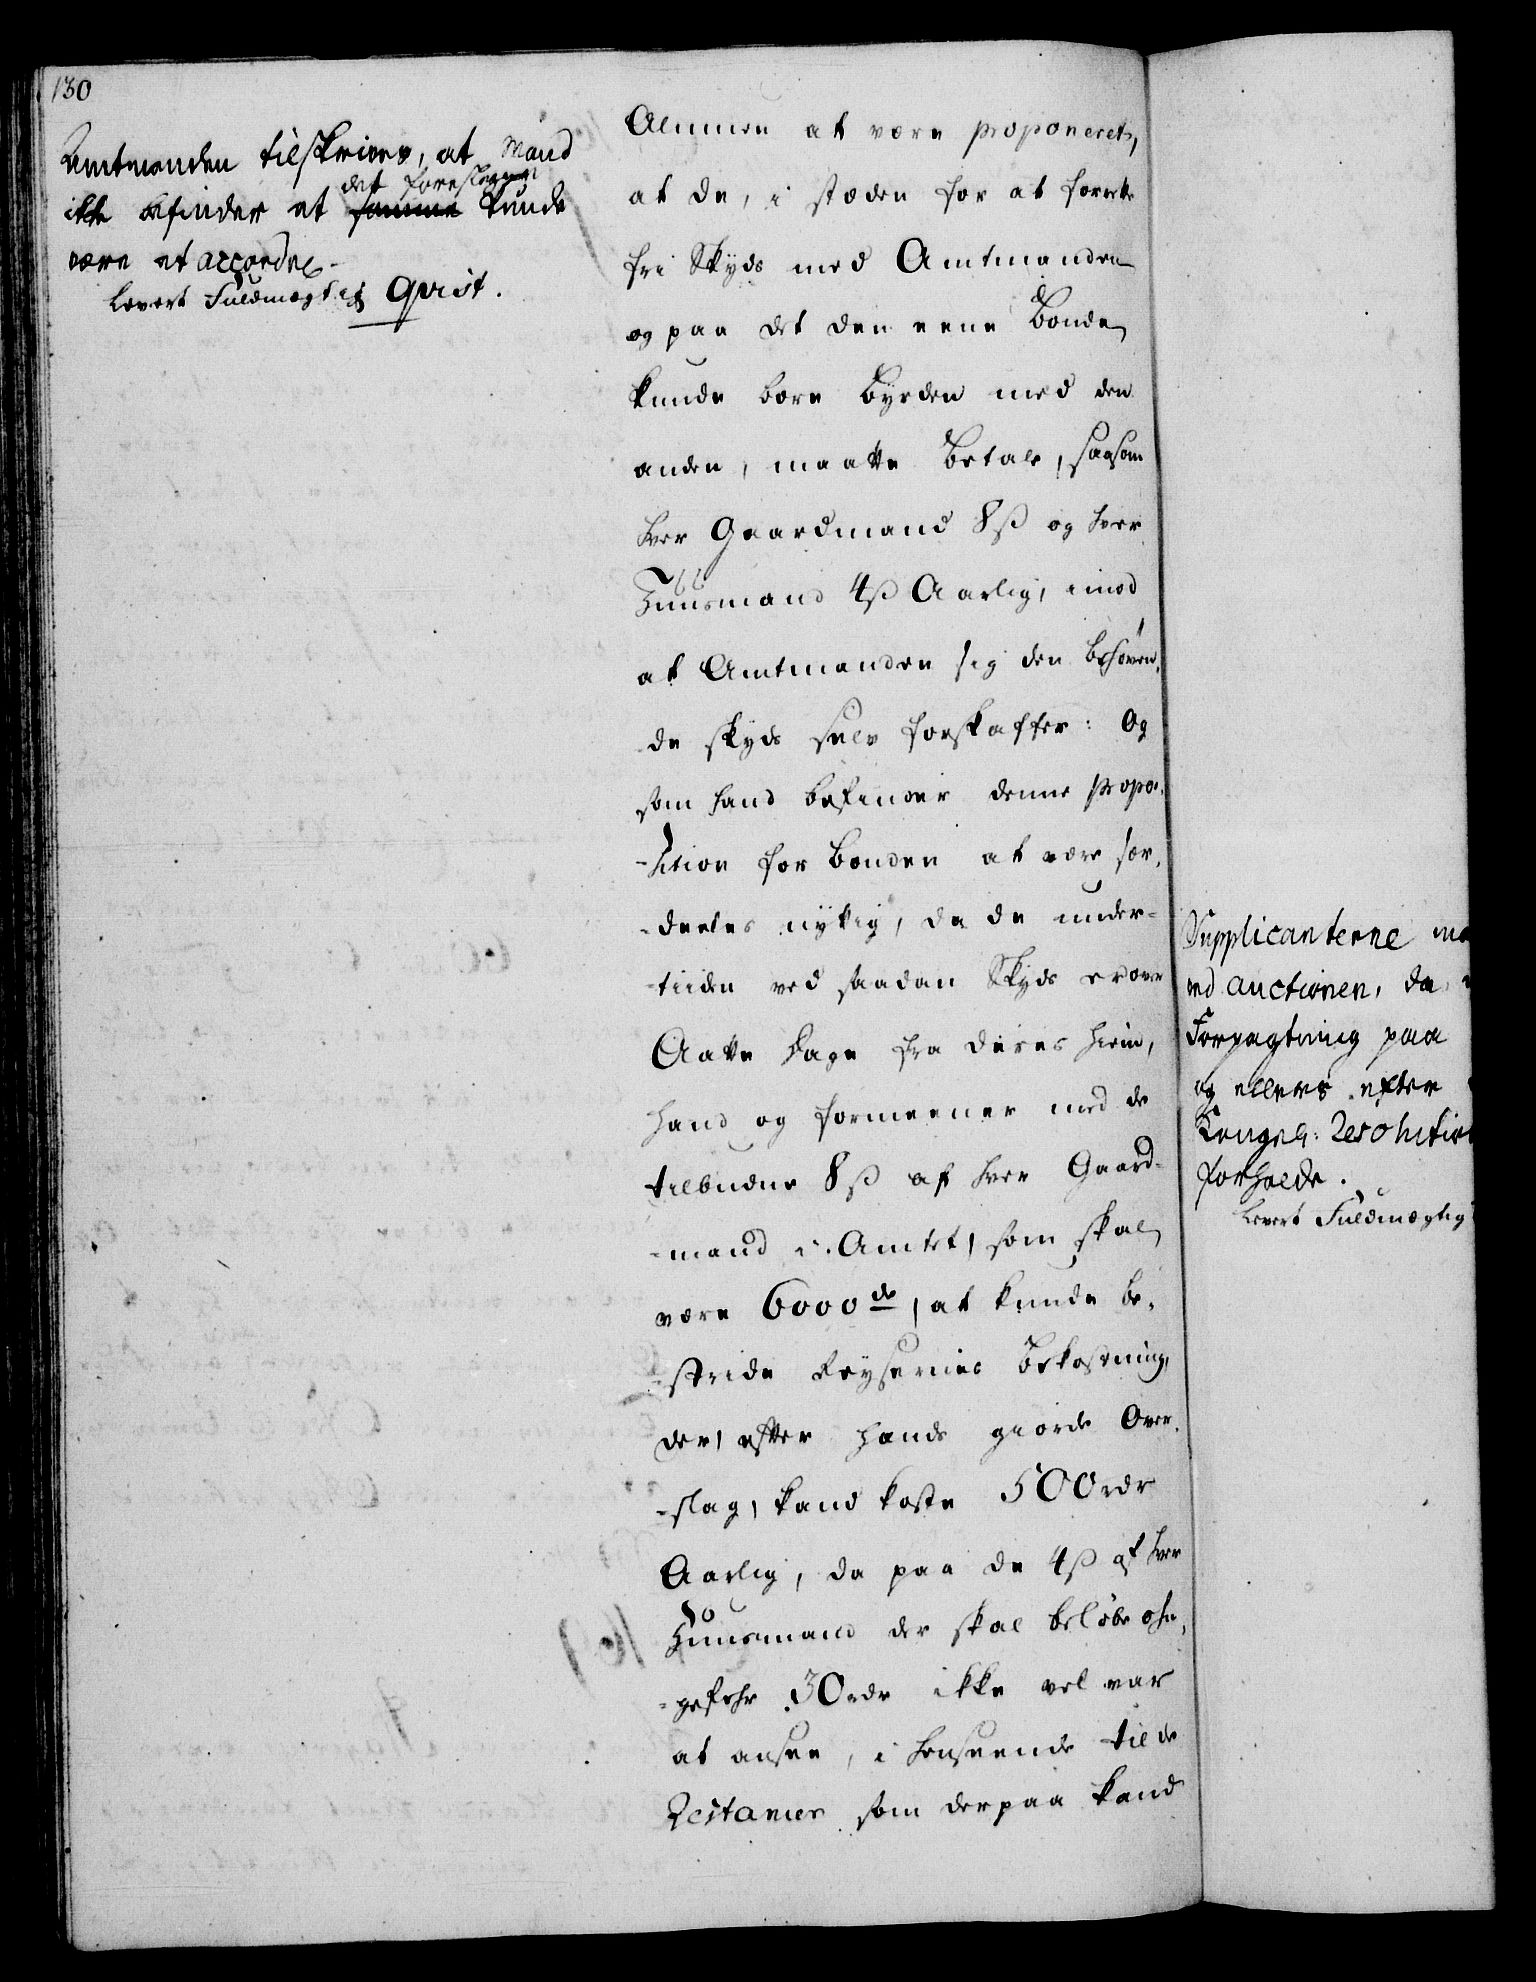 130
Amtmanden tilskrives, at Mand
ikke befinder at det foreslagne kunde
være at accordere
Levert Fuldmægtig Qvist.
Almuen at være proponeret,
at de, i stæden for at forrette
fri Skyds med Amtmanden
og paa det den eene Bonde
kunde bære Byrden med den
anden, maatte betale, saasom
hver Gaardmand 8 ß og hver
Huusmand 4 ß Aarlig, imod
at Amtmanden sig den behøven-
de skyds selv forskaffer: Og
som hand befinder denne propo-
-sition for bonden at være sær-
-deeles nyttig, da de under-
-tiiden ved saadan Skyds ere over
Aatte dage fra deres hiem,
hand og formeener med de
tilbudne 8 ß af hver Gaard-
-mand i Amtet, som skal
være 6000de, at kunde be-
-stride Reysernes bekostning,
der, efter hands giorde Over-
-slag, kand koste 500 rdr
Aarlig, da paa de 4 ß af hver
Huusmand der skal beløbe ohn-
-gefehr 30 rdr ikke vel var
at ansee, i henseende til de
Restancer som derpaa kand
Supplicanterne
ved auctionen, da
Forpagtning paa
og ellers efter
Kongel: Resolution
forholde.
Levert Fuldmægtig